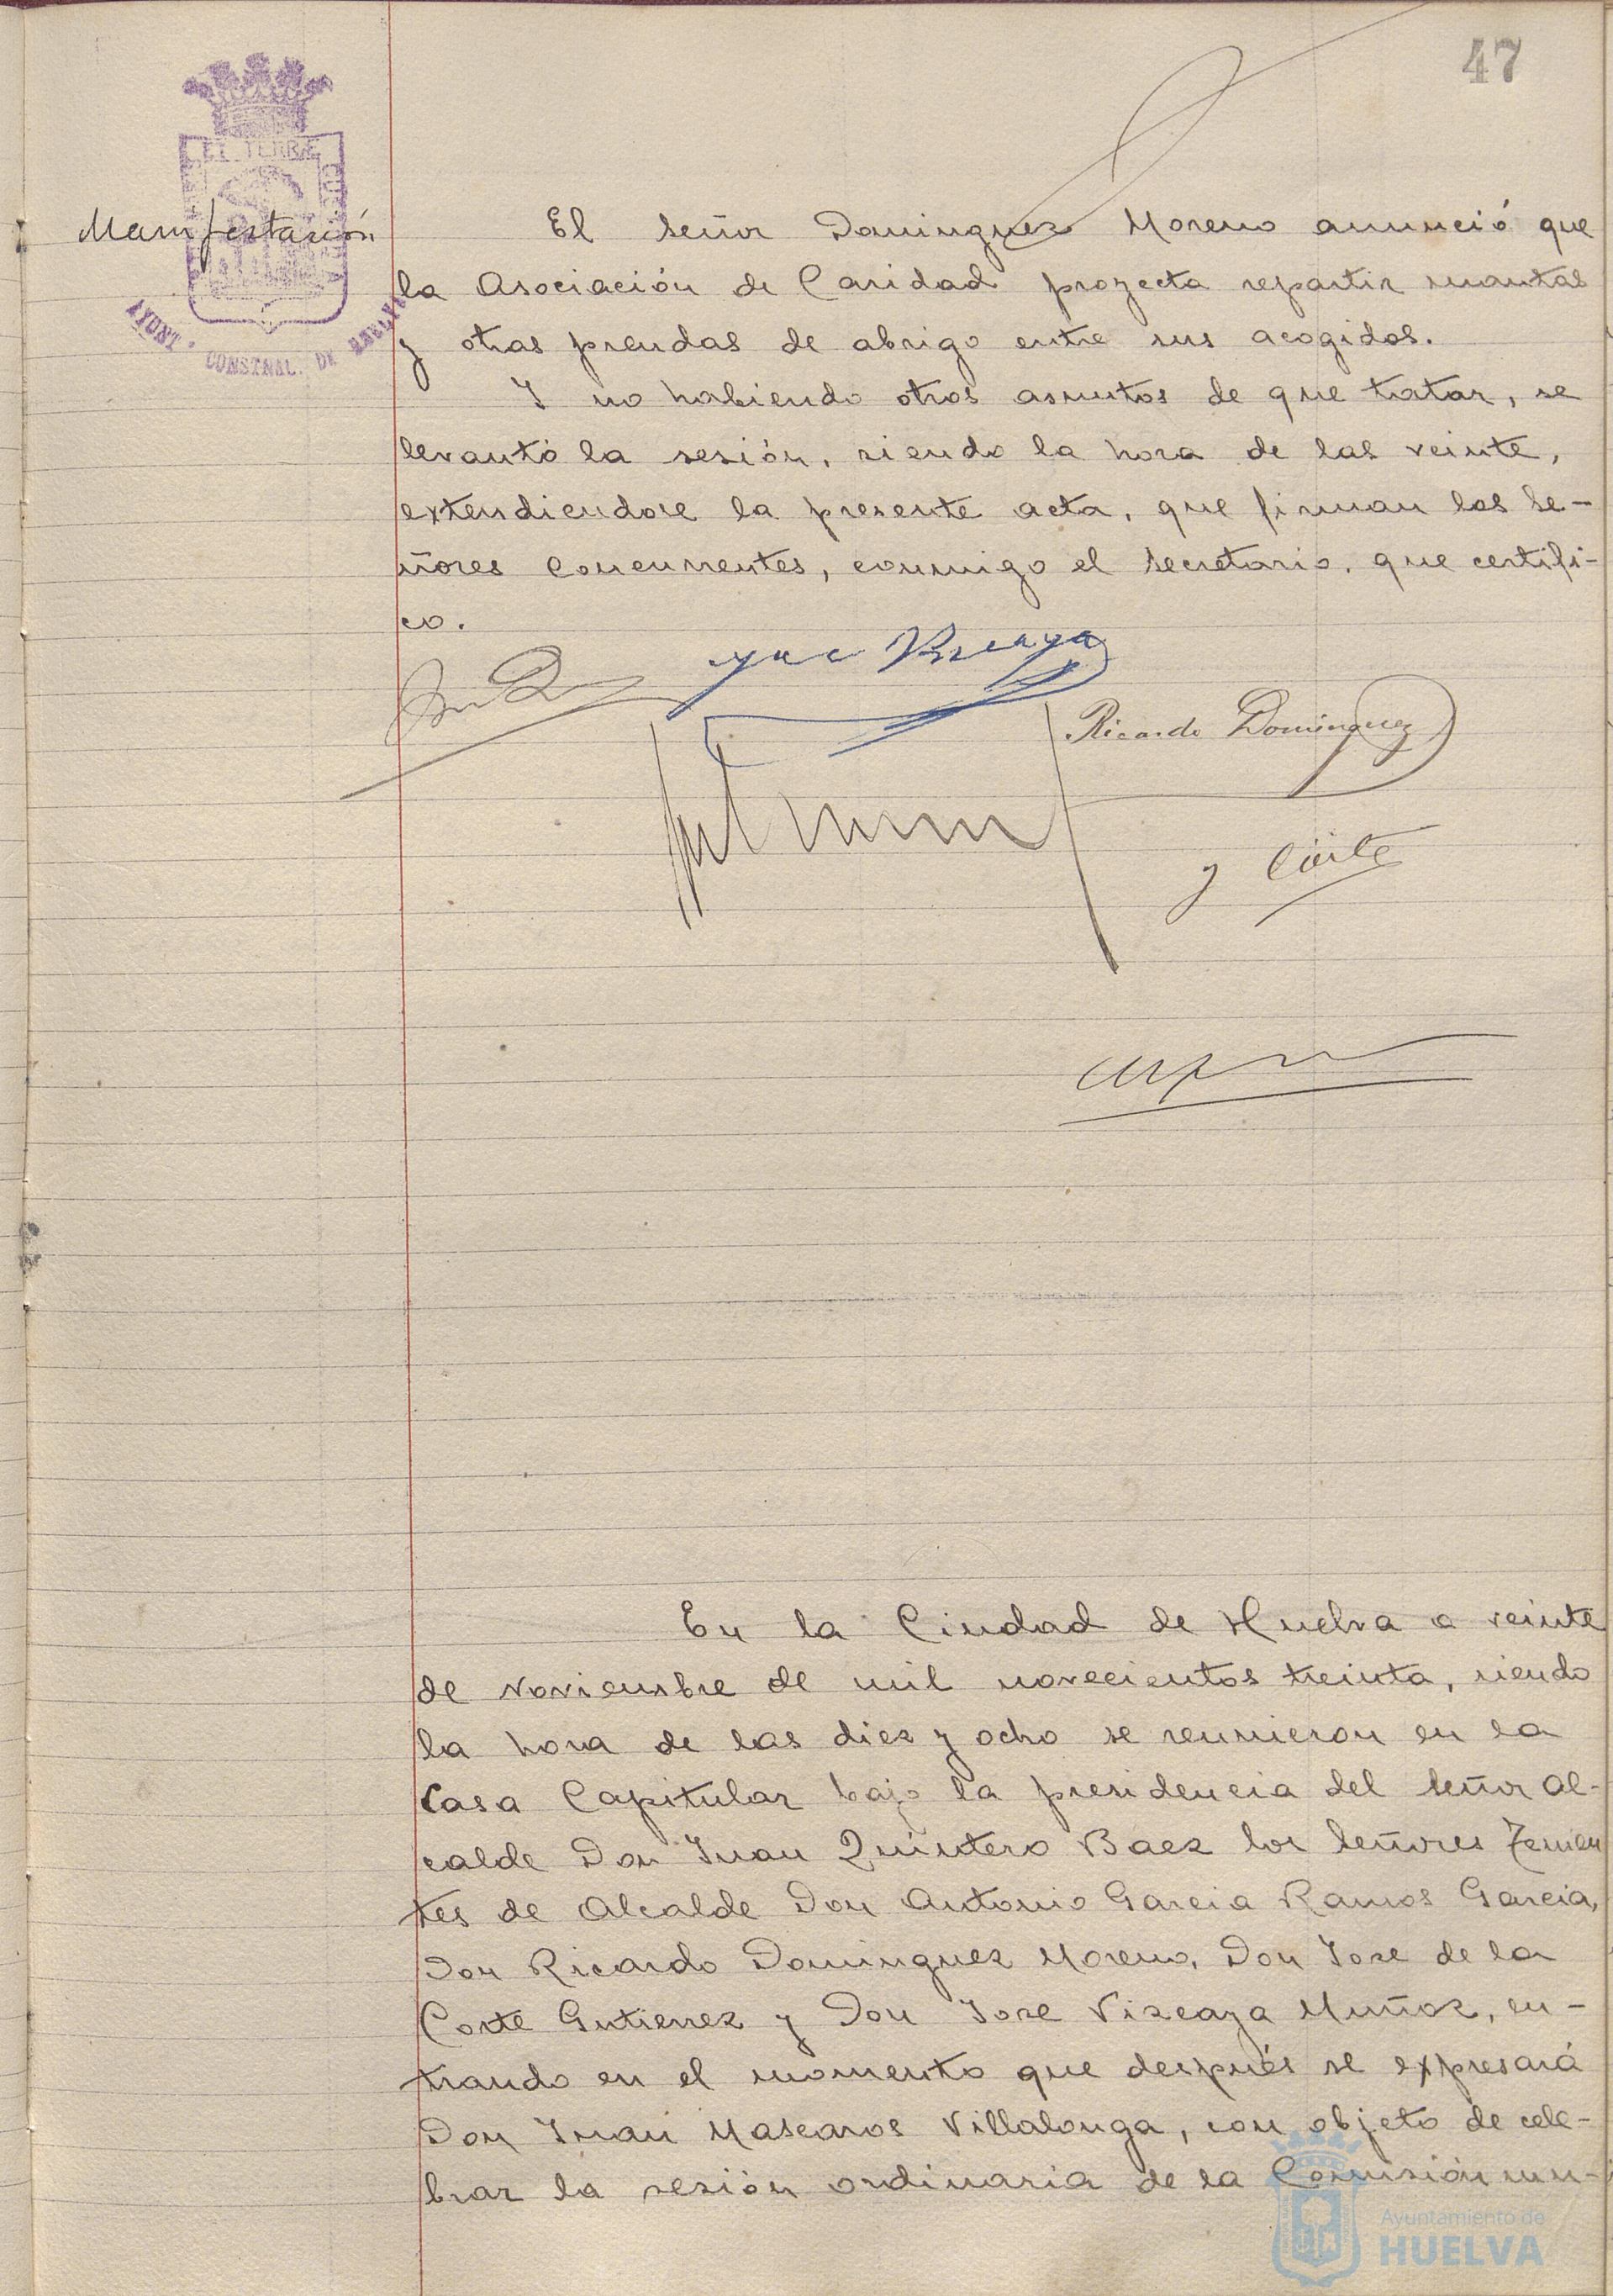 47
Manifestación
El Señor Dominguez Moreno anunció que
la Asociación de Caridad proyecta repartir mantas
y otras prendas de abrigo entre sus acogidos.
Y no habiendo otros asuntos de que tratar, se
levantó la sesión, siendo la hora de las veinte,
extendiendose la presente acta, que firman los Se-
ñores Concurrentes, conmigo el Secretario, que certifi-
co.
Ricardo Dominguez
y Corte
En la Ciudad de Huelva a veinte
de Noviembre de mil novecientos treinta, siendo
la hora de las diez y ocho se reunieron en la
Casa Capitular bajo la presidencia del Señor Al-
calde Don Juan Quintero Baez los Señores Tenien
tes de Alcalde Don Antonio Garcia Ramos Garcia,
Don Ricardo Dominguez Moreno, Don Jose de la
Corte Gutierrez y Don Jose Vizcaya Muñoz, en-
trando en el momento que después se expresará
Don Juan Mascaros Villalonga, con objeto de cele-
brar la sesión ordinaria de la Comisión mu-
AYUNT. CONSTNAL. DE HUELVA
Ayuntamiento de
HUELVA